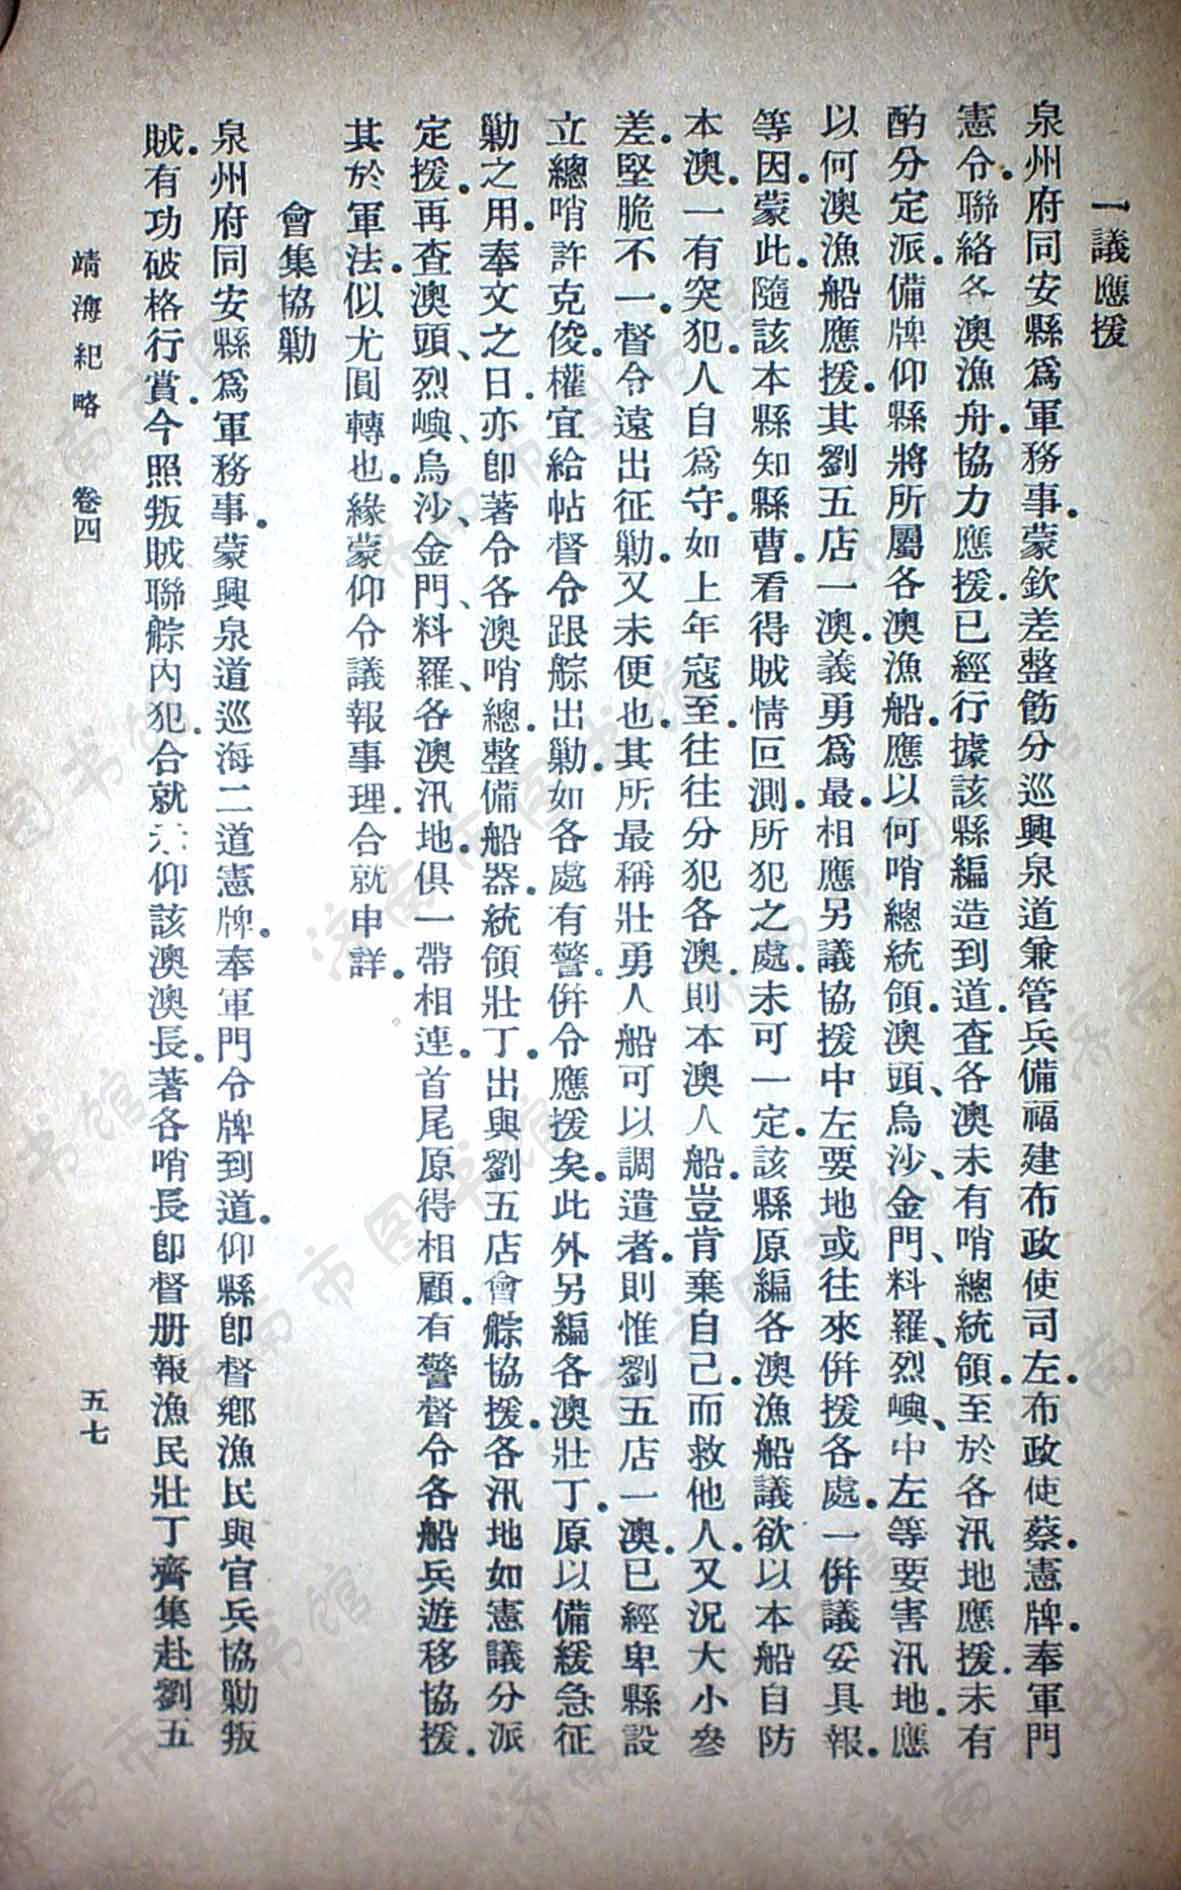 一議應援
泉州府同安縣爲軍務事。蒙欽差整飭分巡興泉道兼管兵備福建布政使司左。布政使蔡。憲牌。奉軍門
憲令。聯絡各澳漁舟。協力應援。已經行據該縣編造到道。查各澳未有哨總統領。至於各汛地應援。未有
酌分定派。備牌仰縣將所屬各澳漁船。應以何哨總統領。澳頭、烏沙、金門、料羅、烈嶼、中左等要害汛地。應
以何澳漁船應援。其劉五店一澳。義勇爲最。相應另議協援中左要地或往來併援各處。一併議妥具報。
等因。蒙此。隨該本縣知縣曹。看得賊情叵測。所犯之處。未可一定。該縣原編各澳漁船議欲以本船自防
本澳。一有突犯。人自爲守。如上年寇至。往往分犯各澳。則本澳人船。豈肯棄自己。而救他人。又況大小參
差。堅脆不一。督令遠出征勦。又未便也。其所最稱壯勇人船可以調遣者。則惟劉五店一澳。已經卑縣設
立總哨許克俊。權宜給帖督令跟䑸出勦。如各處有警。併令應援矣。此外另編各澳壯丁。原以備緩急征
勦之用。奉文之日。亦卽著令各澳哨總。整備船器。統領壯丁。出與劉五店會䑸協援。各汛地如憲議分派
定援。再查澳頭、烈嶼、烏沙、金門、料羅、各澳汛地。俱一帶相連。首尾原得相顧。有警督令各船兵遊移協援。
其於軍法。似尤圓轉也。緣蒙仰令議報事理。合就申詳。
會集協勦
泉州府同安縣爲軍務事。蒙興泉道巡海二道憲牌。奉軍門令牌到道。仰縣卽督鄉漁民與官兵協勦叛
賊。有功破格行賞。今照叛賊聯䑸內犯。合就 仰該澳澳長。著各哨長卽督册報漁民壯丁齊集赴劉五
靖海紀略 卷四
五七